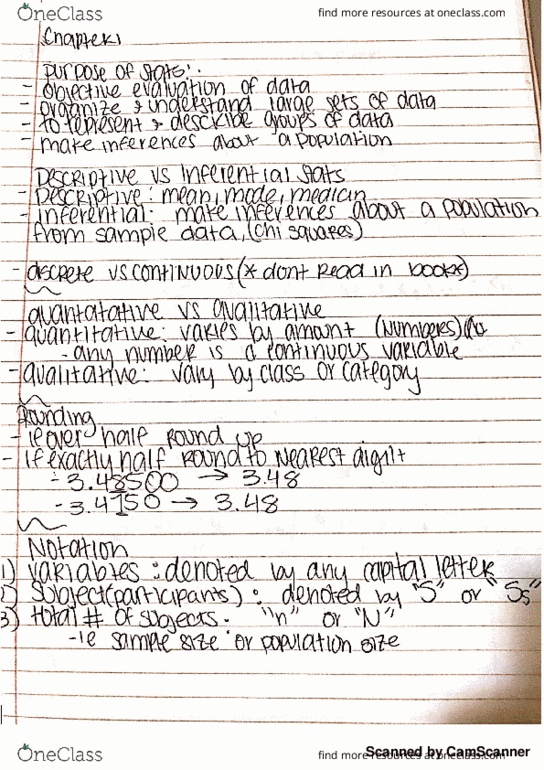 OneClass
find more resources at oneclass.com
Chapter 1
purpose of stats:
- objective evaluation of data
- organize & understand large sets of data
- to represent & describe groups of data
- make inferences about a population
Descriptive vs Inferential Stats
- Descriptive: mean, mode, median
- inferential: make inferences about a population
from sample data, (chi squares)
- discrete vs continuous (* dont Read in book*)
quantatative vs qualitative
- quantitative: varies by amount (numbers)
- any number is a continuous variable
- qualitative: vary by class or category
Rounding
- if over half round up
- if exactly half round to nearest digit
- 3.48500 → 3.48
- 3.4750 → 3.48
Notation
1) variables: denoted by any capital letter
2) subject(participants): denoted by "S" or "Ss"
3) total # of subjects: "n" or "N"
- ie sample size or population size
OneClass
find more resources at oneclass.com
Scanned by CamScanner